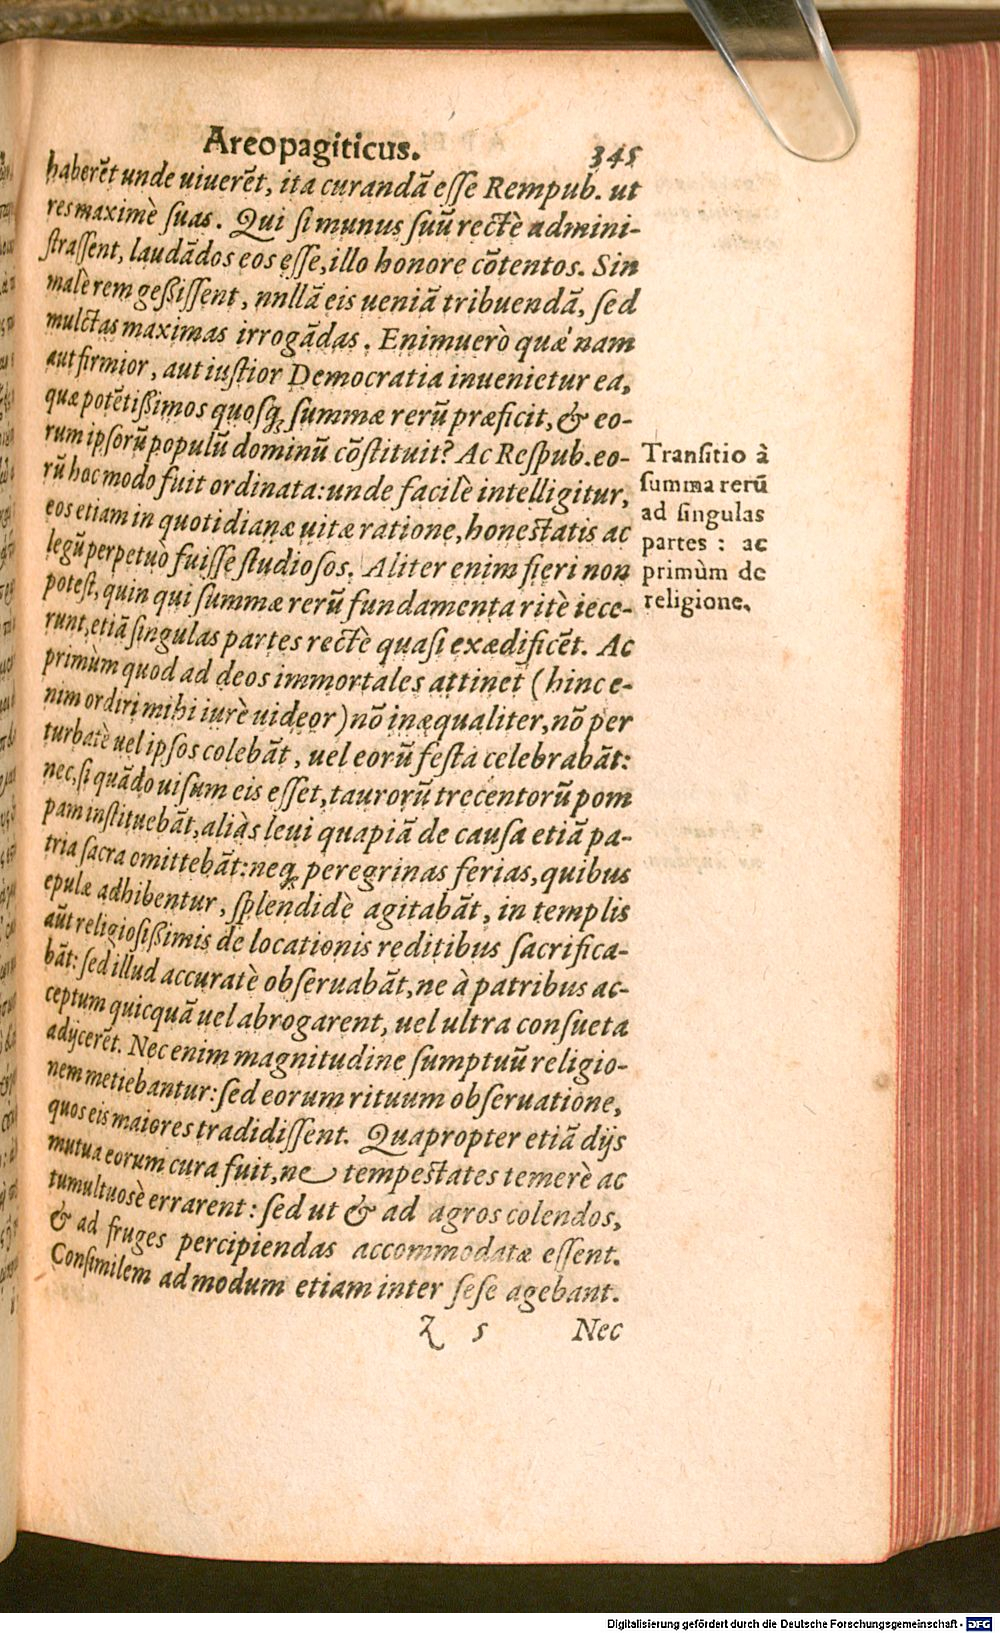 Areopagiticus. 345
haberēt unde uiuerēt, ita curandā eſſe Rempub. ut
res maximè ſuas. Qui ſi munus ſuū rectè admini-
ſtraſſent, laudādos eos eſſe, illo honore cōtentos. Sin
malè rem geßiſſent, nnllā eis ueniā tribuendā, ſed
mulctas maximas irrogādas. Enimuerò quæ nam
aut firmior, aut iuſtior Democratia inuenietur ea,
quæ potētißimos quoſq; ſummæ rerū præficit, & eo-
rum ipſorū populū dominū cōſtituit? Ac Reſpub. eo-
rū hoc modo fuit ordinata: unde facilè intelligitur,
eos etiam in quotidianæ uitæ ratione, honeſtatis ac
legū perpetuò fuiſſe ſtudioſos. Aliter enim fieri non
poteſt, quin qui ſummæ rerū fundamenta ritè iece-
runt, etiā ſingulas partes rectè quaſi exædificēt. Ac
primùm quod ad deos immortales attinet (hinc e-
nim ordiri mihi iurè uideor) nō inæqualiter, nō per
turbatè uel ipſos colebāt, uel eorū feſta celebrabāt:
nec, ſi quādo uiſum eis eſſet, taurorū trecentorū pom
pam inſtituebāt, aliàs leui quapiā de cauſa etiā pa-
tria ſacra omittebāt: neq; peregrinas ferias, quibus
epulæ adhibentur, ſplendidè agitabāt, in templis
aūt religioſißimis de locationis reditibus ſacrifica-
bāt: ſed illud accuratè obſeruabāt, ne à patribus ac-
ceptum quicquā uel abrogarent, uel ultra conſueta
adijcerēt. Nec enim magnitudine ſumptuū religio-
nem metiebantur: ſed eorum rituum obſeruatione,
quos eis maiores tradidiſſent. Quapropter etiā dijs
mutua eorum cura fuit, ne tempeſtates temerè ac
tumultuosè errarent: ſed ut & ad agros colendos,
& ad fruges percipiendas accommodatæ eſſent.
Conſimilem ad modum etiam inter ſeſe agebant.
Z 5 Nec
Tranſitio à
ſumma rerū
ad ſingulas
partes: ac
primùm de
religione.
Digitalisierung gefördert durch die Deutsche Forschungsgemeinschaft - DFG